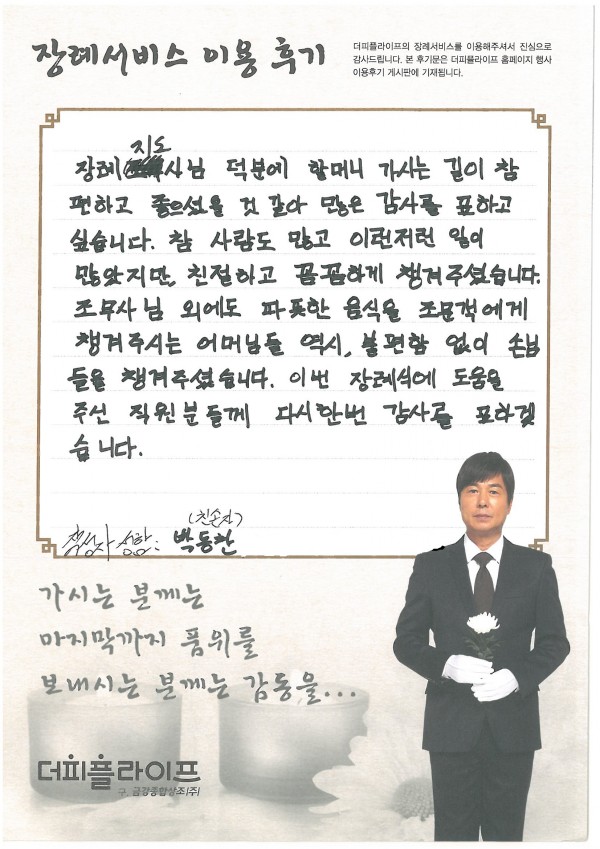 장례서비스 이용 후기
더피플라이프의 장례서비스를 이용해주셔서 진심으로
감사드립니다. 본 후기문은 더피플라이프 홈페이지 행사
이용후기 게시판에 기재됩니다.
지도
장례 사님 덕분에 할머니 가시는 길이 참
편하고 좋으셨을 것 같아 많은 감사를 표하고
싶습니다. 참 사람도 많고 이런저런 일이
많았지만, 친절하고 꼼꼼하게 챙겨주셨습니다.
조무사님 외에도 따뜻한 음식을 조문객에게
챙겨주시는 어머님들 역시, 불편함 없이 손님
들을 챙겨주셨습니다. 이번 장례식에 도움을
주신 직원분들께 다시한번 감사를 표하겠
습니다.
(친손자)
작성자 성함: 박동찬
가시는 분께는
마지막까지 품위를
보내시는 분께는 감동을...
더피플라이프
구. 금강종합상조(주)